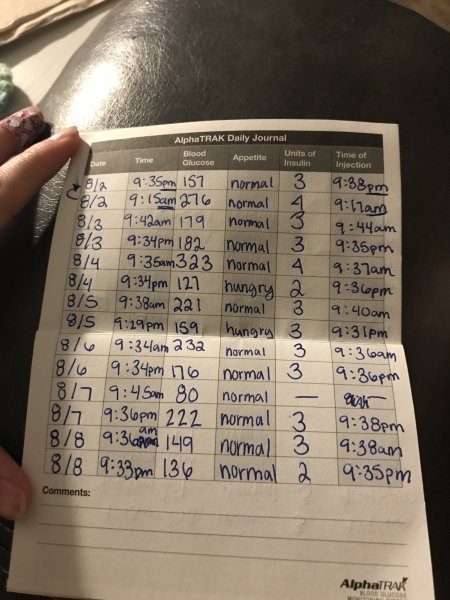 AlphaTRAK Daily Journal
Date Time Blood Glucose Appetite Units of Insulin Time of Injection
8/2 9:35pm 157 normal 3 9:38pm
8/2 9:15am 276 normal 4 9:17am
8/3 9:42am 179 normal 3 9:44am
8/3 9:34pm 182 normal 3 9:35pm
8/4 9:35am 323 normal 4 9:37am
8/4 9:34pm 127 hungry 2 9:36pm
8/5 9:38am 221 normal 3 9:40am
8/5 9:29pm 159 hungry 3 9:31pm
8/6 9:34am 232 normal 3 9:36am
8/6 9:34pm 176 normal 3 9:36pm
8/7 9:45am 80 normal —
8/7 9:36pm 222 normal 3 9:38pm
8/8 9:36am 149 normal 3 9:38am
8/8 9:33pm 136 normal 2 9:35pm
Comments:
AlphaTRAK
BLOOD GLUCOSE